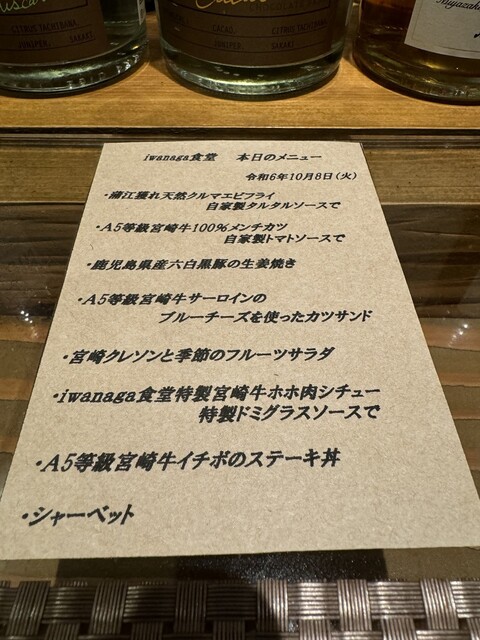 CACAO. CITRUS TACHIBANA.
JUNIPER. SAKAKI.
CITRUS TACHIBANA.
JUNIPER. SAKAKI.
Miyazaki
iwanaga食堂 本日のメニュー
令和6年10月8日(火)
・蒲江獲れ天然クルマエビフライ
自家製タルタルソースで
・A5等級宮崎牛100%メンチカツ
自家製トマトソースで
・鹿児島県産六白黒豚の生姜焼き
・A5等級宮崎牛サーロインの
ブルーチーズを使ったカツサンド
・宮崎クレソンと季節のフルーツサラダ
・iwanaga食堂特製宮崎牛ホホ肉シチュー
特製ドミグラスソースで
・A5等級宮崎牛イチボのステーキ丼
・シャーベット